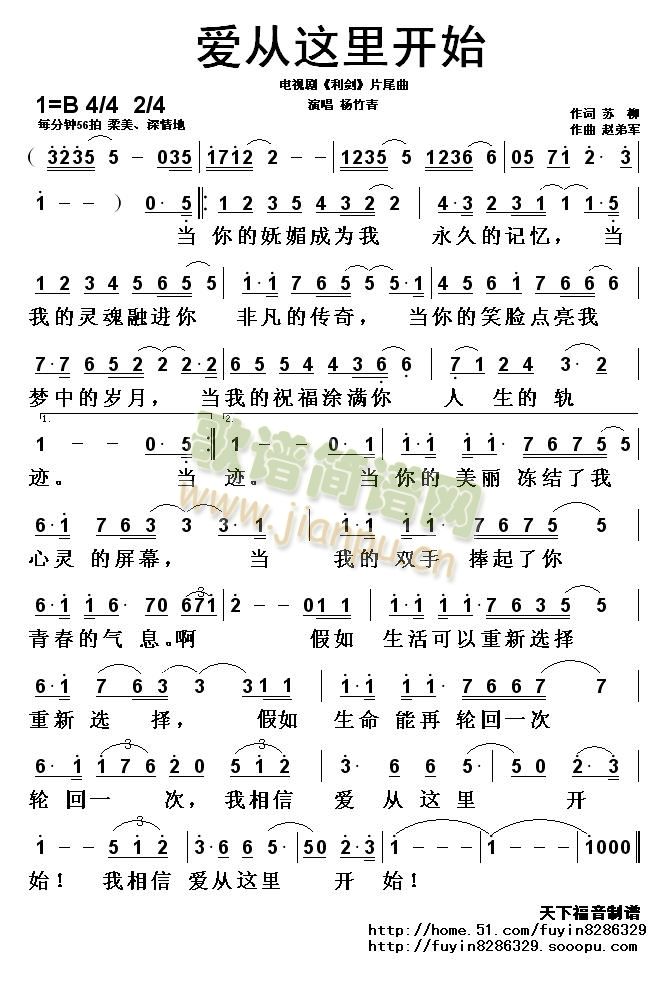 爱从这里开始
电视剧《利剑》片尾曲
1=B 4/4 2/4
演唱 杨竹青
作词 苏 柳
每分钟56拍 柔美、深情地
作曲 赵弟军
( 3235 5 - 035 | 1712 2 - | 1235 5 - | 1216 6 - | 05 71 2· 3
1 - - ) 0· 5 |: 1 2 3 5 4 3 2 2 | 4 3 2 3 1 1 1·5
当 你的妩媚成为我 永久的记忆， 当
1 2 3 4 5 6 5 5 | 1·1 1 7 6 5 5 5·1 | 4 5 6 1 7 6 6 6
我的灵魂融进你 非凡的传奇， 当你的笑脸点亮我
7·7 6 5 2 2 2·2 | 6 5 5 4 3·6 | 7 1 2 4 3· 2
梦中的岁月， 当我的祝福涂满你 人 生的 轨
1. 2.
1 - - 0· 5 :| 1 - - 0· 1 | 1·1 1 1 7 6 7 5 5
迹。 当 迹。 当 你的 美丽 冻结了我
6·1 7 6 3 3 3 3· 1 | 1·1 1 1 7 6 7 5 5
心灵 的屏幕， 当 我的 双手 捧起了你
6· 1 1 6· 70 671 | 2 - - 011 | 1·1 1 1 7 6 3 5 5
青春的气 息。啊 假如 生活可以重新选择
6·1 7 6 3 3 3 3 1 1 | 1·1 1 1 7 6 6 7 7
重新 选 择， 假如 生命 能再 轮回一次
6· 1 1 7 6 2 0 5 1 2 | 3· 6 6 5 | 5 50 2· 3
轮 回一 次， 我相信 爱 从 这 里 开
1 - - 5 1 2 | 3·6 6 5 | 5 - 50 2·3 | 1 - - - | 1 - - - | 1000 ‖
始！ 我相信 爱从这里 开 始！
歌谱简谱网
www.jianpu.cn
天下福音制谱
http://home.51.com/fuyin8286329
http://fuyin8286329.sooopu.com